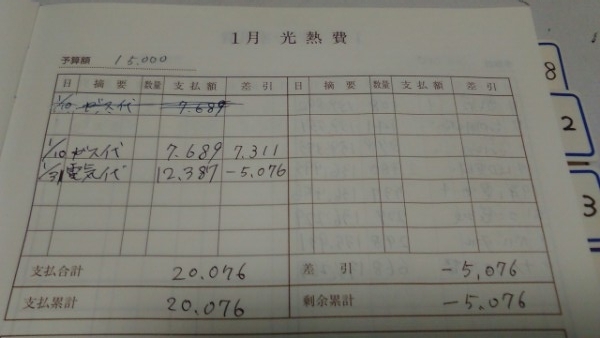 1月 光熱費
予算額 15.000
日 摘要 数量 支払額 差引 日 摘要 数量 支払額 差引
1/10 ガス代 7.689
1/10 ガス代 7.689 7.311
1/31 電気代 12.387 -5.076
支払合計 20.076 差引 -5,076
支払累計 20.076 剰余累計 -5.076
8
2
3